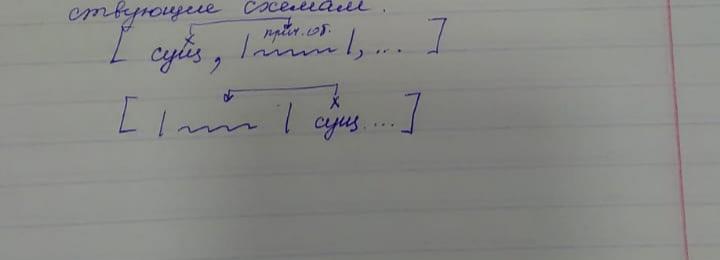 ствующие схемам.
прич. об.
[ сущ, | |, ... ]
х
[ | | сущ ... ]